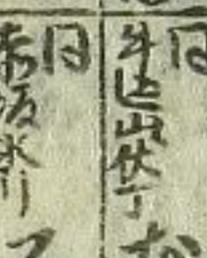 同
牛込山伏丁
同
赤坂氷川